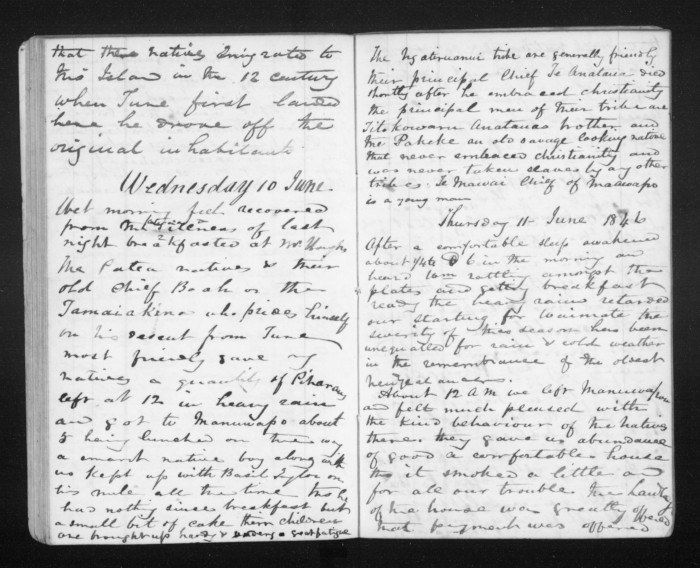 that these natives Emigrated to
this Island in the 12 century
when Turie first landed
here he drove off the
original inhabitants
Wednesday 10 June
Wet morning feel recovered
from the of last
night breakfasted at Mr Houghs
The Patea natives & their
old chief or the
Tamaiakina who prides himself
on his descent from Turie
most friendly gave my
natives a quantity of
left at 12 in heavy rain
and got to Manuwapo about
5 being lunched on the way
a smart native boy along with
us kept up with Basil Taylor on
his mule all the time tho he
has noth'g since breakfast but
a small bit of cake their children
are brought up hardy & undergo great fatigue
The Ngatiruanui tribe are generally friendly
their principal Chief Te Analaua died
shortly after he embraced christianity
the principal men of their tribe are
Titokowaru Anatauas brother and
the Paheke an old savage looking native
that never embraced christianity and
was never taken slaves by any other
tribes. Te Mawai Chief of Manuwapo
is a young man
Thursday 11 June 1846
After a comfortable sleep awakened
about 1/4 to 6 in the morning and
heard Tom rattling amongst the
plates and getting breakfast
ready the heavy rain retarded
our starting for Waimate the
severity of this season has been
unequalled for rain & cold weather
in the remembrance of the oldest
New Zealanders.
About 12 A M we left Manuwapo
and felt much pleased with
the kind behaviour of the natives
there. they gave us abundance
of good a comfortable house
tho it smoked a little and
for all our trouble the Landlady
of the house was greatly offended
that payment was offered